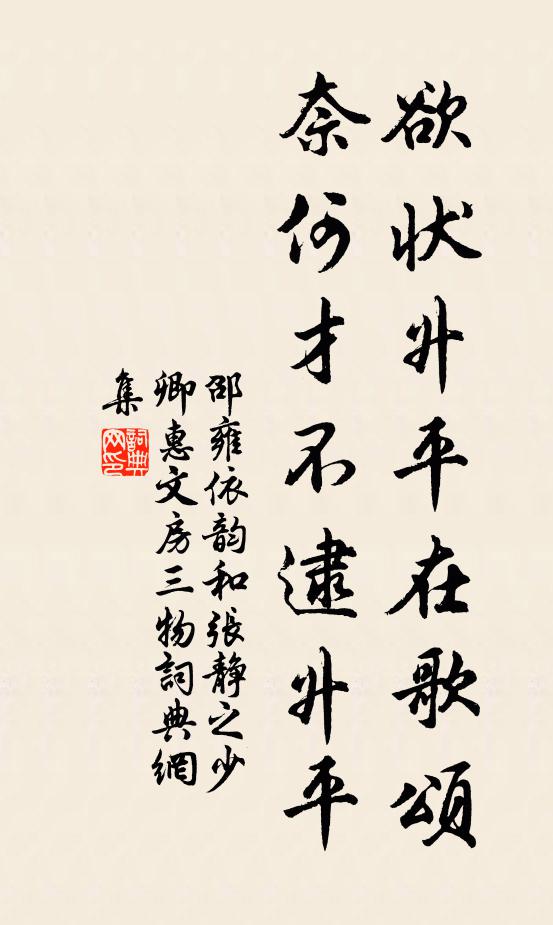 欲状升平在歌頌
奈何才不逮升平
邵雍依韵和張静之少
卿惠文房三物詞典網
集
詞典
网印